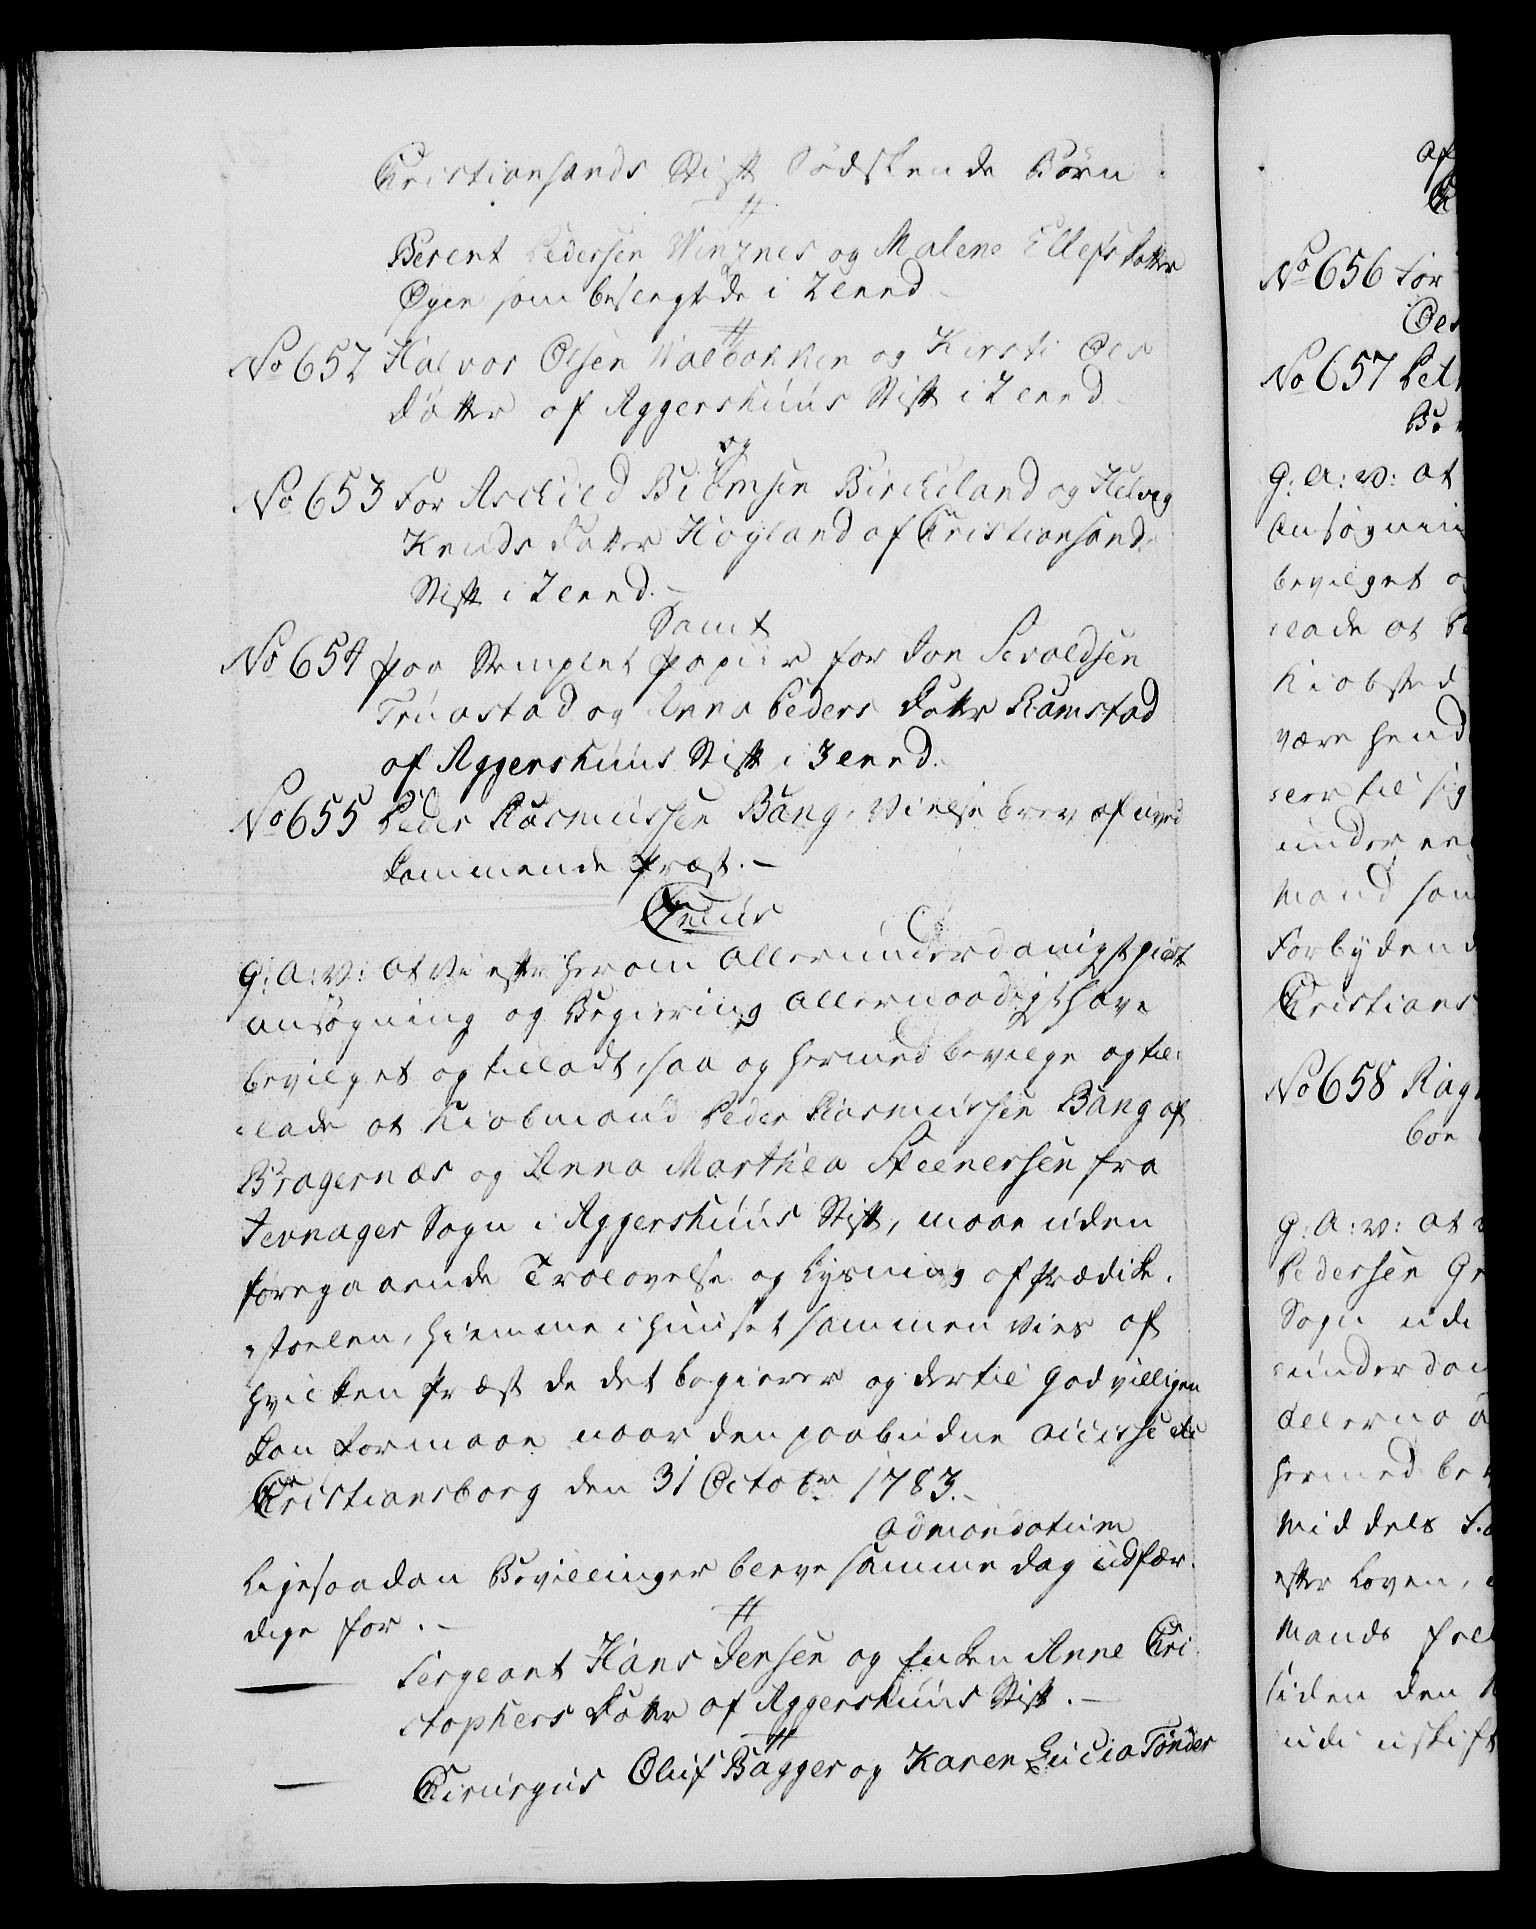 Christiansands Stift Sødskende Børn
//
Berent Pedersen Winznes og Malene Ellefs Datter
Øyen som beslegtede i 2 Leed
//
No 652 Halvor Olsen Walbakken og Kirsti Ols
Datter af Aggershuus Stift i 2 Leed
og
No 653 For Aschild Biömsen Bircheland og Helvig
Knuds Datter Høyland af Christiansands
Stift i 2 Leed.
Samt
No 654 paa Stemplet Papiir for Jon Sevaldsen
Truastad og Anna Peders Datter Ramstad
af Aggershuus Stift i 3 Leed.
No 655 Peder Rasmussen Bang, Vielse brev af uved
kommende Præst.
Creuus
G: A: V: at Vi efter herom allerunderdanigst giort
ansøgning og Begiering allernaadigst have
bevilget og tilladt, saa og hermed bevilge og til-
lade at Kiøbmand Peder Rasmussen Bang af
Bragernæs og Anna Marthea Steenersen fra
Jevnager Sogn i Aggershuus Stift, maae uden
foregaaende Trolovelse og Lysning af Prædike-
stoelen, hiemme i Huuset sammen vies af
hvilken Præst de det begierer og dertil godvilligen
kan formaae naar den paabudne Accisse etc
Christiansborg den 31 Octobr 1783.
ad mandatum
Ligesaadan Bevillinger bleve samme dag udfær-
dige for.
//
Sergeant Hans Jensen og Enken Anne Chri-
stophers Datter af Aggershuus Stift.
//
Chirurgus Oluf Bagger og Karen Lucia Tønder
af
No 656 for
No 657
G: A: V: at
ansøgning
bevilget
lade at
Kiøbsted
være
seer til sig
under
Mand som
Forbyden
Christians
No 658
G: A: V: at
Pedersen
Sogn udi
underdan
allerna
hermed be
Middels
efter Loven,
Mands
siden den
udi uskift